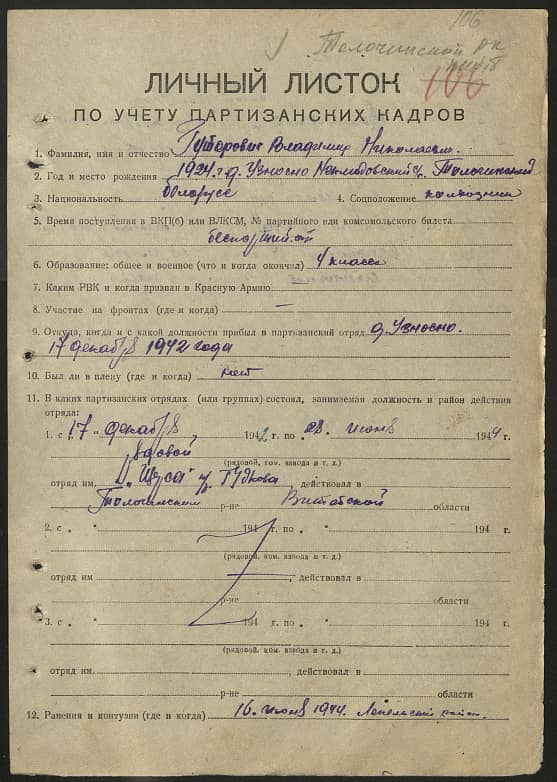 106
Толочинской рк
106
ЛИЧНЫЙ ЛИСТОК
ПО УЧЕТУ ПАРТИЗАНСКИХ КАДРОВ
1. Фамилия, имя и отчество Владимир Николаевич
2. Год и место рождения 1924 г. д. Узносно Толочинский
3. Национальность белорусс 4. Соцположение колхозник
5. Время поступления в ВКП(б) или ВЛКСМ, № партийного или комсомольского билета
беспартийный
6. Образование: общее и военное (что и когда окончил) 4 класса
7. Каким РВК и когда призван в Красную Армию
8. Участие на фронтах (где и когда) —
9. Откуда, когда и с какой должности прибыл в партизанский отряд д. Узносно.
17 декабря 1942 года
10. Был ли в плену (где и когда) нет
11. В каких партизанских отрядах (или группах) состоял, занимаемая должность и район действия
отряда:
1. с „17“ декабря 1942 г. по „28“ июня 1944 г.
рядовой
(рядовой, ком. взвода и т. д.)
отряд им. Гудкова действовал в
Толочинском р-не Витебской области
2. с „ “ 194 г. по „ “ 194 г.
(рядовой, ком. взвода и т. д.)
отряд им , действовал в
р-не области
3. с „ “ 194 г. по „ “ 194 г.
(рядовой, ком. взвода и т. д.)
отряд им. , действовал в
р-не области
12. Ранения и контузии (где и когда) 16 июня 1944. Лепельский район.